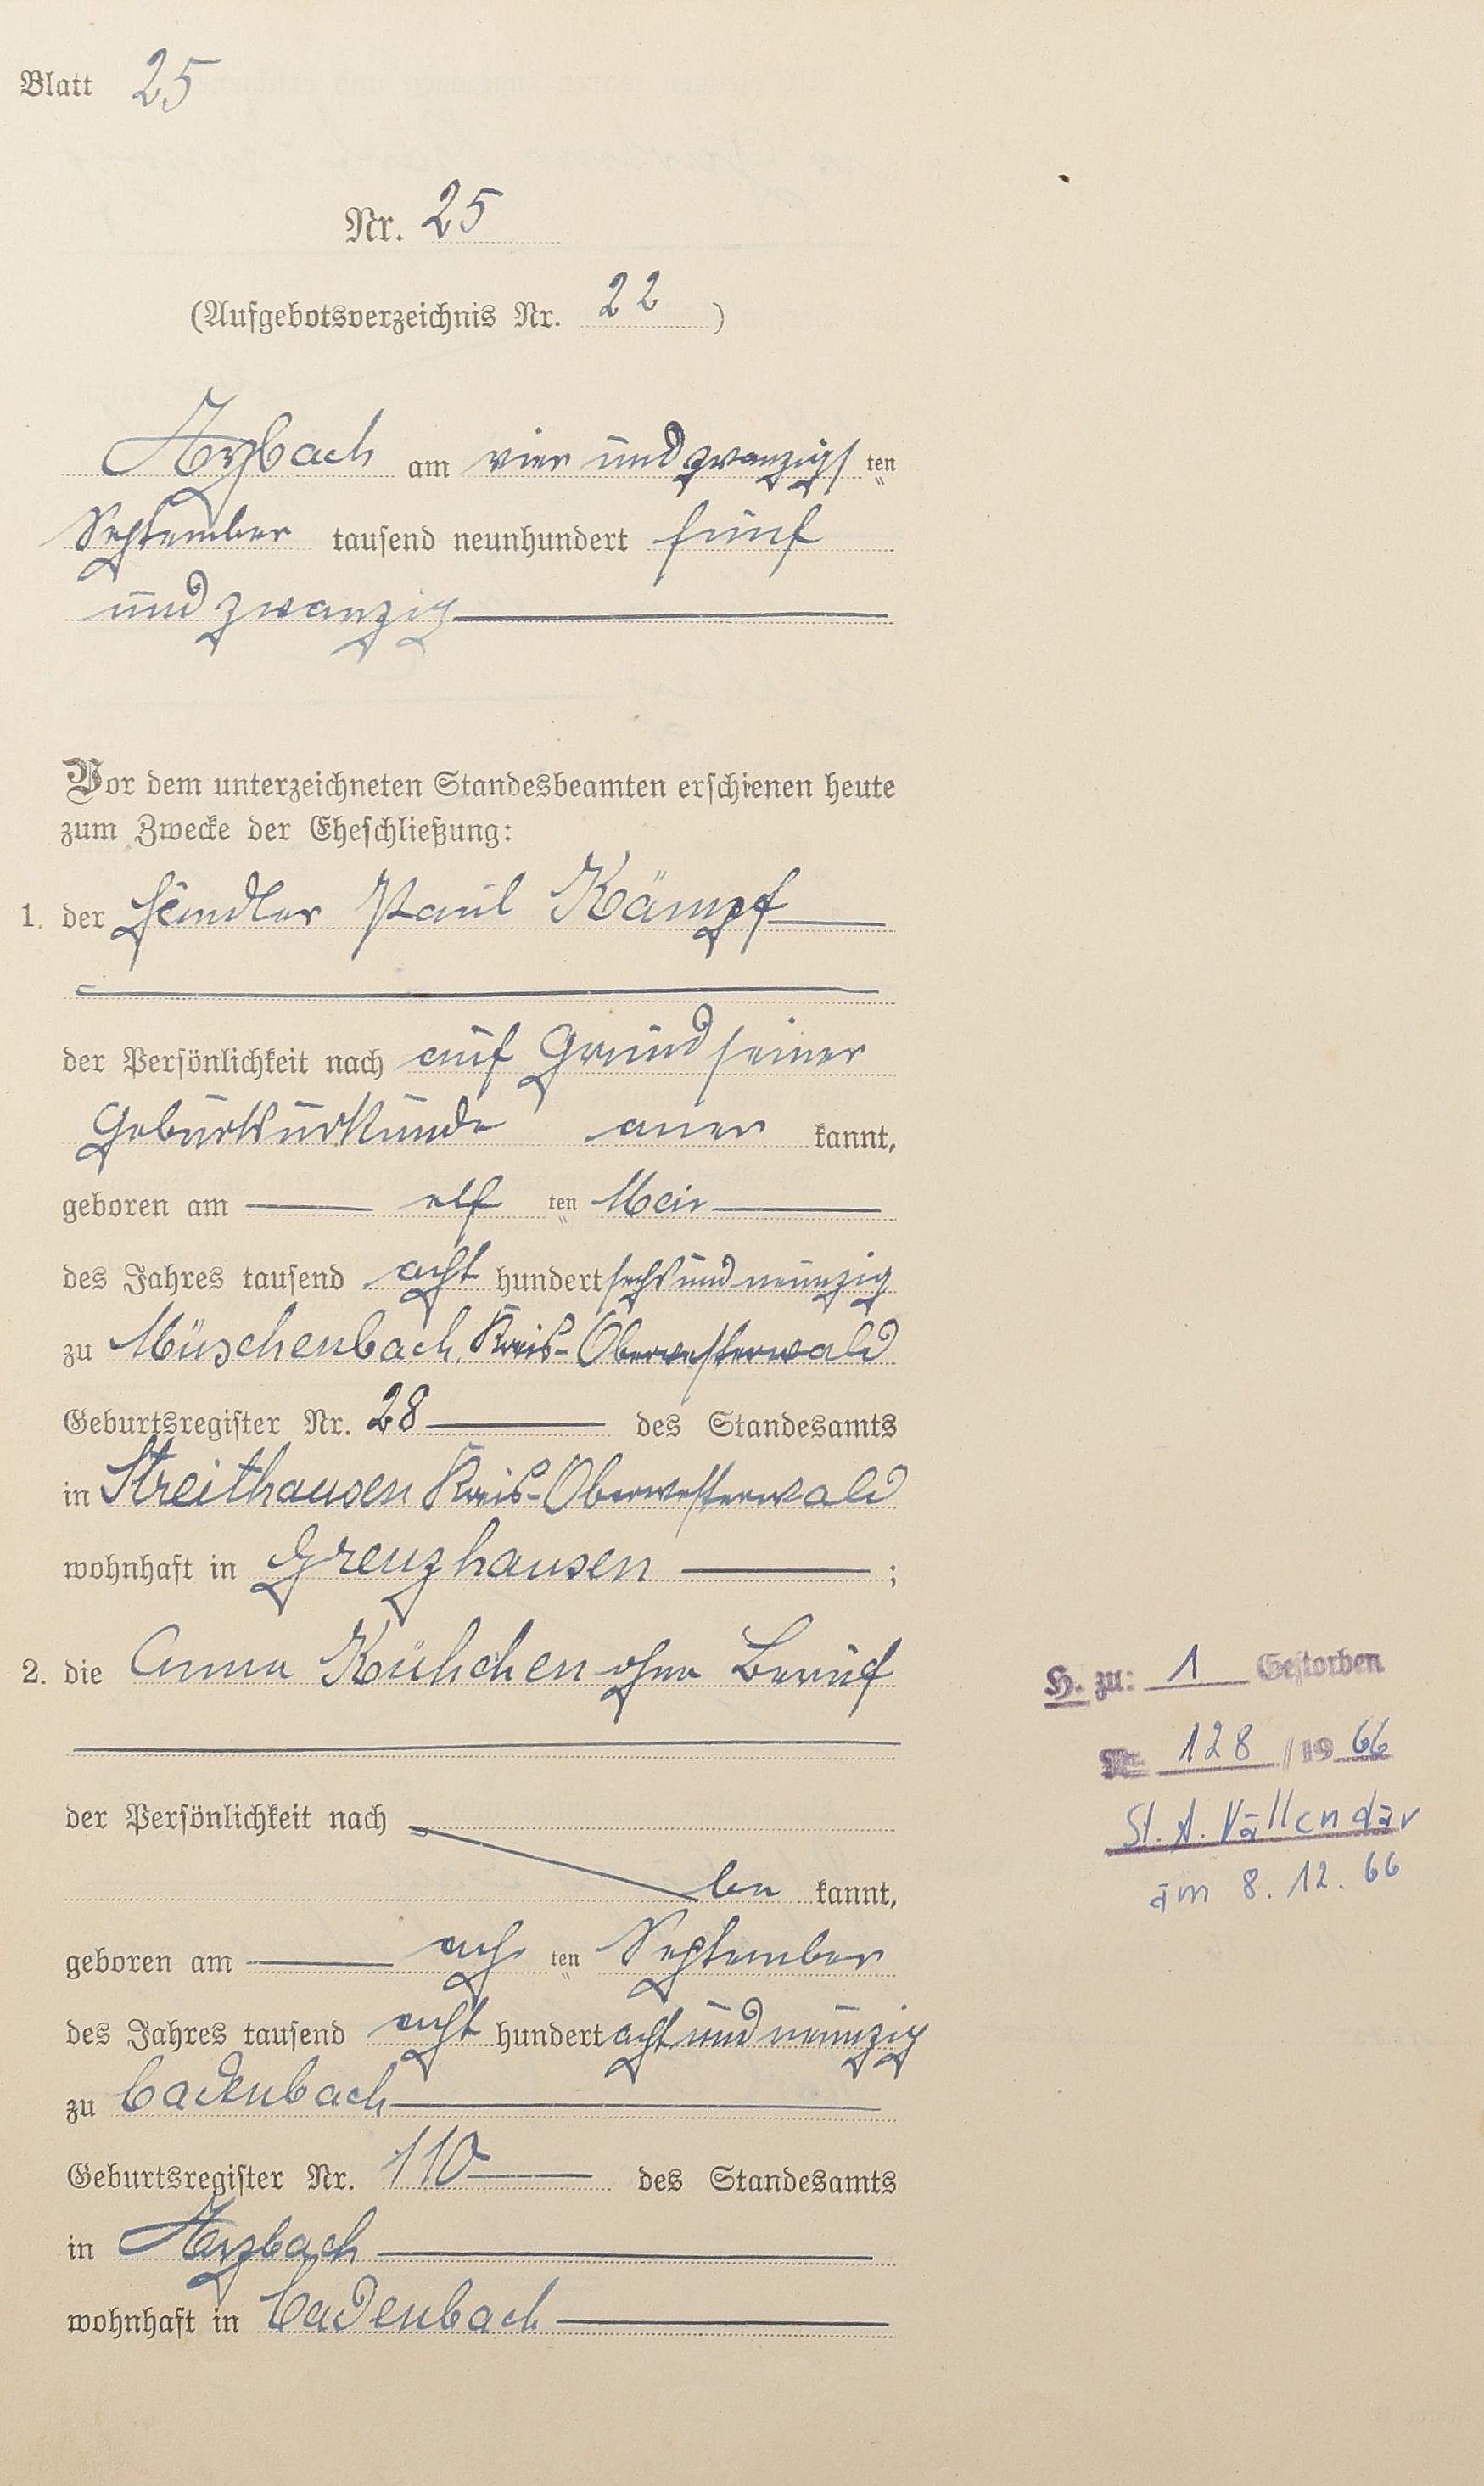 Blatt 25
Nr. 25
(Aufgebotsverzeichnis Nr. 22)
Arzbach am vier und zwanzigsten
September tausend neunhundert fünf
und zwanzig
Vor dem unterzeichneten Standesbeamten erschienen heute
zum Zwecke der Eheschließung:
1. der Händler Paul Kämpf
der Persönlichkeit nach auf Grund seiner
Geburtsurkunde aner kannt,
geboren am elf ten Mai
des Jahres tausend acht hundert sechs und neunzig
zu Müschenbach, Kreis-Oberwesterwald
Geburtsregister Nr. 28 des Standesamts
in Streithausen Kreis-Oberwesterwald
wohnhaft in Grenzhausen ;
2. die Anna Kühchen ohne Beruf
der Persönlichkeit nach
be kannt,
geboren am ach ten September
des Jahres tausend acht hundert acht und neunzig
zu Cadenbach
Geburtsregister Nr. 110 des Standesamts
in Arzbach
wohnhaft in Cadenbach
H. zu: 1 Gestorben
Nr. 128 / 19 66
St. A. Vallendar
am 8. 12. 66